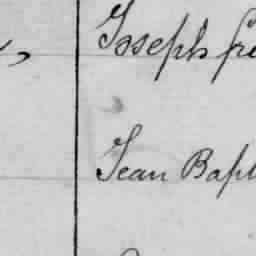 Joseph
Jean Bapt